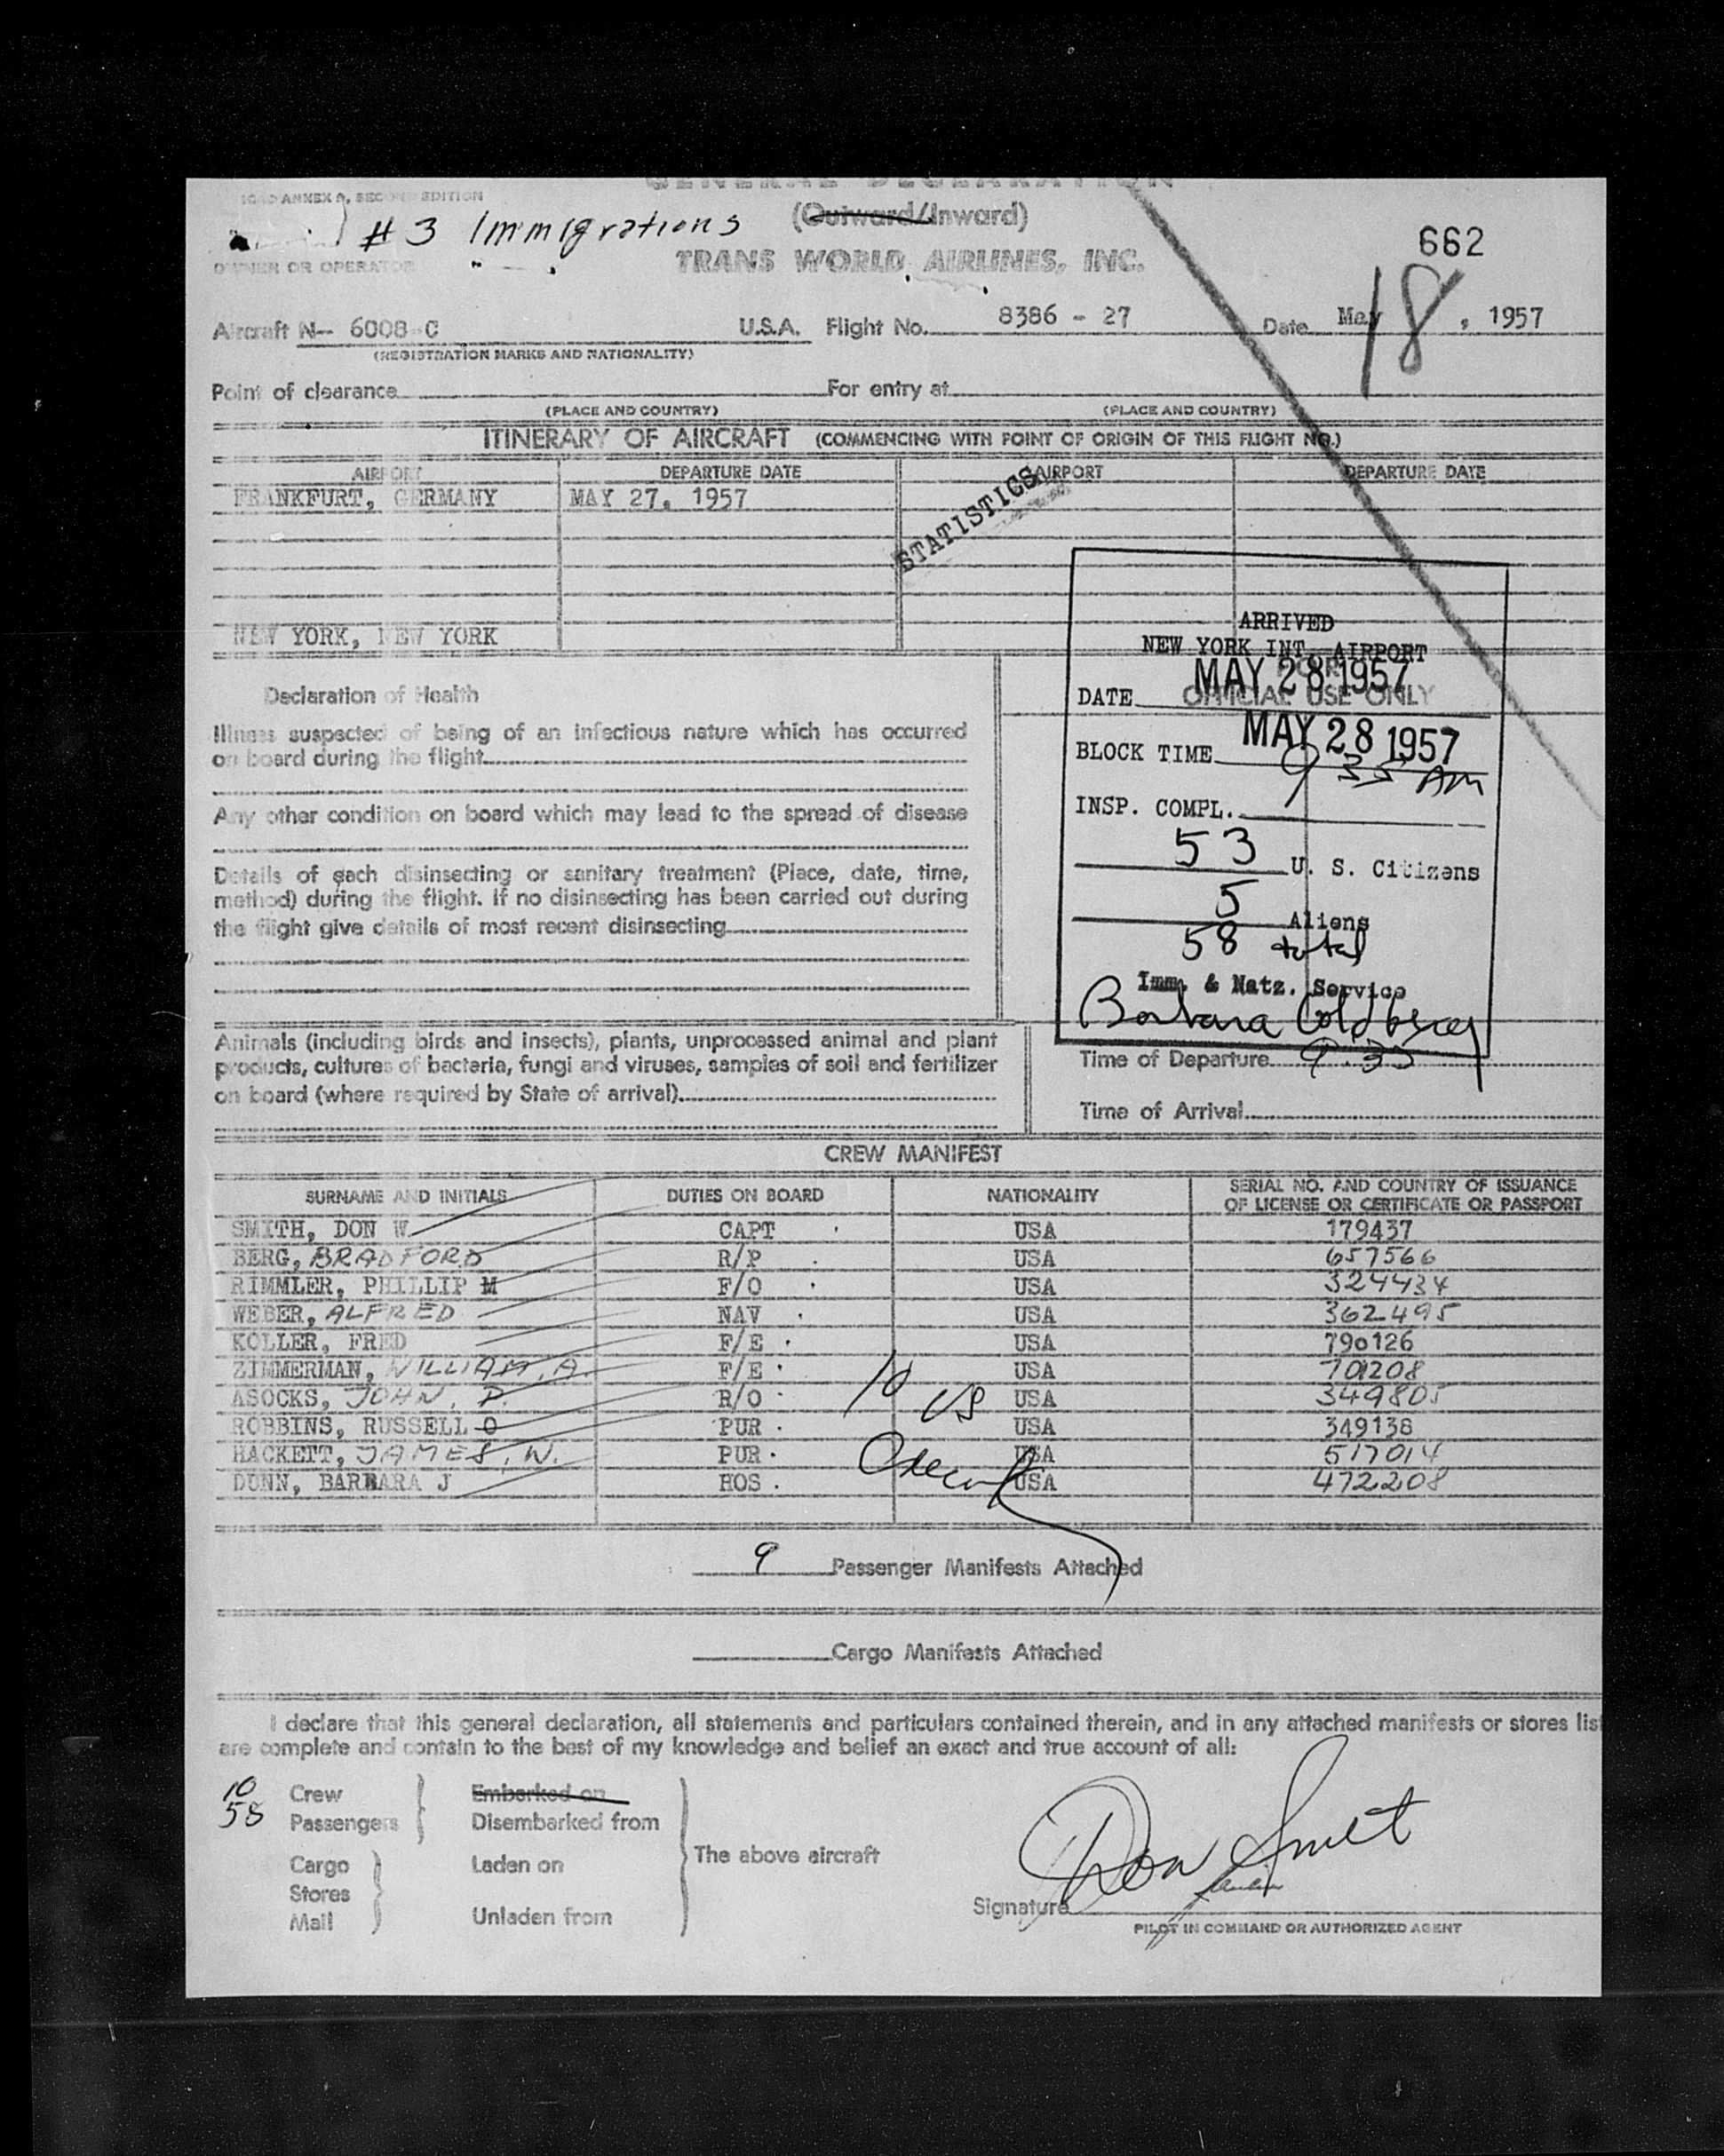 ICAO ANNEX 9, SECOND EDITION
GENERAL DECLARATION
(Outward/Inward)
#3 Immigrations
662
OWNER OR OPERATOR
TRANS WORLD AIRLINES, INC.
Aircraft N- 6008-C U.S.A. Flight No. 8386 - 27 Date May 18, 1957
(REGISTRATION MARKS AND NATIONALITY)
Point of clearance For entry at
(PLACE AND COUNTRY) (PLACE AND COUNTRY)
ITINERARY OF AIRCRAFT (COMMENCING WITH POINT OF ORIGIN OF THIS FLIGHT NO.)
AIRPORT DEPARTURE DATE AIRPORT DEPARTURE DATE
FRANKFURT, GERMANY MAY 27, 1957
STATISTICS
NEW YORK, NEW YORK
ARRIVED
NEW YORK INT. AIRPORT
FOR
OFFICIAL USE ONLY
DATE MAY 28 1957
MAY 28 1957
BLOCK TIME 9 35 AM
INSP. COMPL.
53 U. S. Citizens
5 Aliens
58 total
Imm. & Natz. Service
Barbara Goldberg
Declaration of Health
Illness suspected of being of an infectious nature which has occurred
on board during the flight
Any other condition on board which may lead to the spread of disease
Details of each disinsecting or sanitary treatment (Place, date, time,
method) during the flight. If no disinsecting has been carried out during
the flight give details of most recent disinsecting
Animals (including birds and insects), plants, unprocessed animal and plant
products, cultures of bacteria, fungi and viruses, samples of soil and fertilizer
on board (where required by State of arrival)
Time of Departure 9:35
Time of Arrival
CREW MANIFEST
SURNAME AND INITIALS DUTIES ON BOARD NATIONALITY SERIAL NO. AND COUNTRY OF ISSUANCE
OF LICENSE OR CERTIFICATE OR PASSPORT
SMITH, DON W CAPT USA 179437
BERG, BRADFORD R/P USA 657566
RIMMLER, PHILLIP M F/O USA 324434
WEBER, ALFRED NAV USA 362495
KOLLER, FRED F/E USA 790126
ZIMMERMAN, WILLIAM, A. F/E USA 701208
ASOCKS, JOHN, P. R/O USA 349805
ROBBINS, RUSSELL O PUR USA 349138
HACKETT, JAMES, W. PUR USA 517014
DUNN, BARBARA J HOS USA 472208
10 US
9 Passenger Manifests Attached
Cargo Manifests Attached
I declare that this general declaration, all statements and particulars contained therein, and in any attached manifests or stores list
are complete and contain to the best of my knowledge and belief an exact and true account of all:
10 Crew Embarked on
58 Passengers Disembarked from
The above aircraft
Cargo Laden on
Stores
Mail Unladen from
Signature Don Smith
PILOT IN COMMAND OR AUTHORIZED AGENT